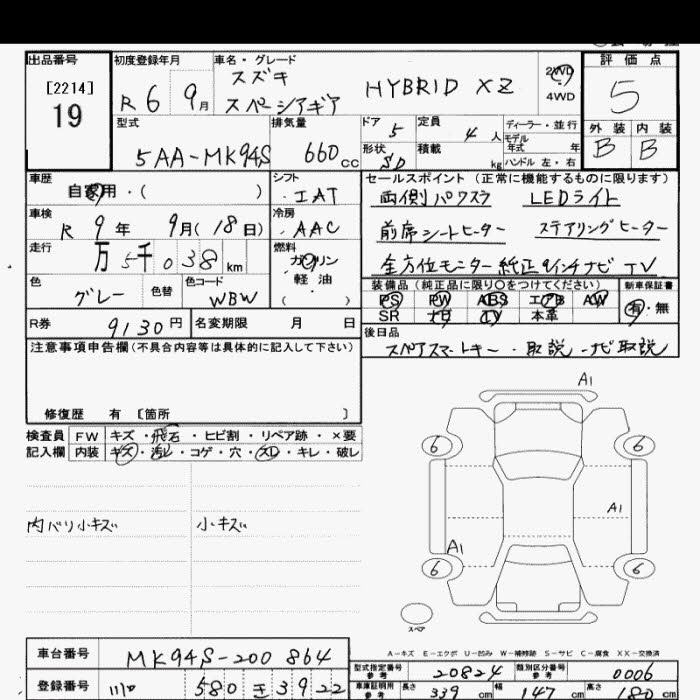 出品番号
[2214]
19
初度登録年月
R 6 9月
車名・グレード
スズキ
スペーシアギア
HYBRID XZ
2WD
4WD
評価点
5
外装 内装
B B
型式
5AA-MK94S
排気量
660cc
ドア 5
形状 5D
定員 4人
積載 kg
ディーラー・並行
モデル年式 年
ハンドル 左・右
車歴
自家用・( )
車検
R 9年 9月(18日)
走行
万5千038km
色
グレー
色替
色コード
WBW
シフト
IAT
冷房
AAC
燃料
ガソリン
軽油
( )
セールスポイント (正常に機能するものに限ります)
両側パワスラ LEDライト
前席シートヒーター ステアリングヒーター
全方位モニター 純正9インチナビ TV
装備品(純正品に限り○をつけてください)
PS PW ABS エアB AW
SR ナビ TV 本革
新車保証書
有・無
後日品
スペアスマートキー・取説・ナビ取説
R券 9130円
名変期限 月 日
注意事項申告欄(不具合内容等は具体的に記入して下さい)
修復歴 有 [箇所 ]
検査員記入欄
FW キズ・飛石・ヒビ割・リペア跡・×要
内装 キズ・汚レ・コゲ・穴・スレ・キレ・破レ
内バリ小キズ 小キズ
A1
6 6
A1
A1
6 6
スペア
A-キズ E-エクボ U-凹み W-補修跡 S-サビ C-腐食 XX-交換済
車台番号
MK94S-200864
登録番号
580 3922
型式指定番号 参考
20824
類別区分番号 参考
0006
車庫証明用 参考
長さ 339cm 幅 147cm 高さ cm